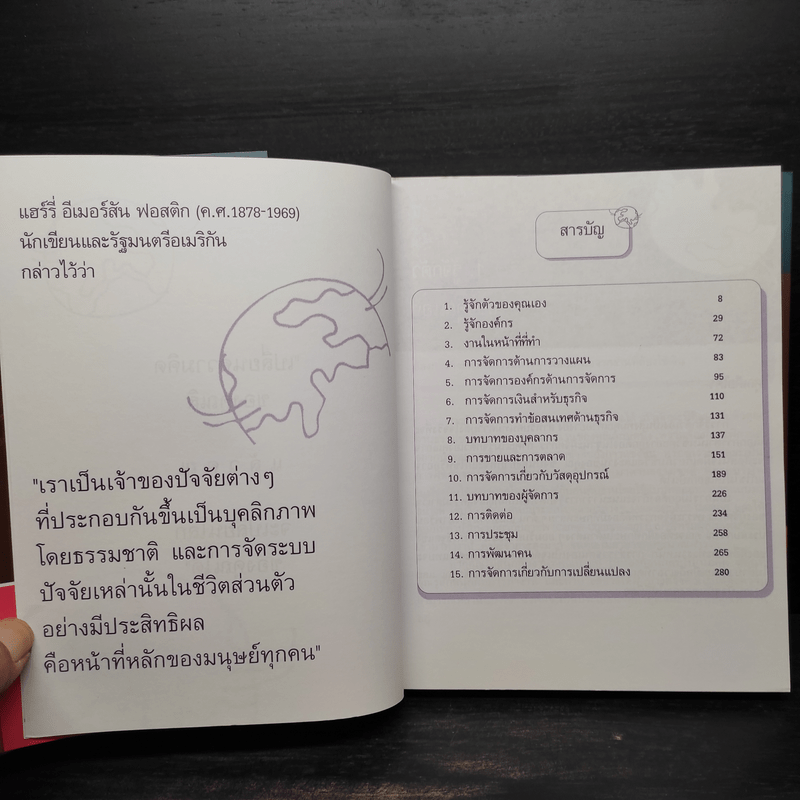 แฮร์รี่ อีเมอร์สัน ฟอสติก (ค.ศ.1878-1969)
นักเขียนและรัฐมนตรีอเมริกัน
กล่าวไว้ว่า
"เราเป็นเจ้าของปัจจัยต่างๆ
ที่ประกอบกันขึ้นเป็นบุคลิกภาพ
โดยธรรมชาติ และการจัดระบบ
ปัจจัยเหล่านั้นในชีวิตส่วนตัว
อย่างมีประสิทธิผล
คือหน้าที่หลักของมนุษย์ทุกคน"
สารบัญ
1. รู้จักตัวของคุณเอง 8
2. รู้จักองค์กร 29
3. งานในหน้าที่ที่ทำ 72
4. การจัดการด้านการวางแผน 83
5. การจัดการองค์กรด้านการจัดการ 95
6. การจัดการเงินสำหรับธุรกิจ 110
7. การจัดการทำข้อสนเทศด้านธุรกิจ 131
8. บทบาทของบุคลากร 137
9. การขายและการตลาด 151
10. การจัดการเกี่ยวกับวัสดุอุปกรณ์ 189
11. บทบาทของผู้จัดการ 226
12. การติดต่อ 234
13. การประชุม 258
14. การพัฒนาคน 265
15. การจัดการเกี่ยวกับการเปลี่ยนแปลง 280